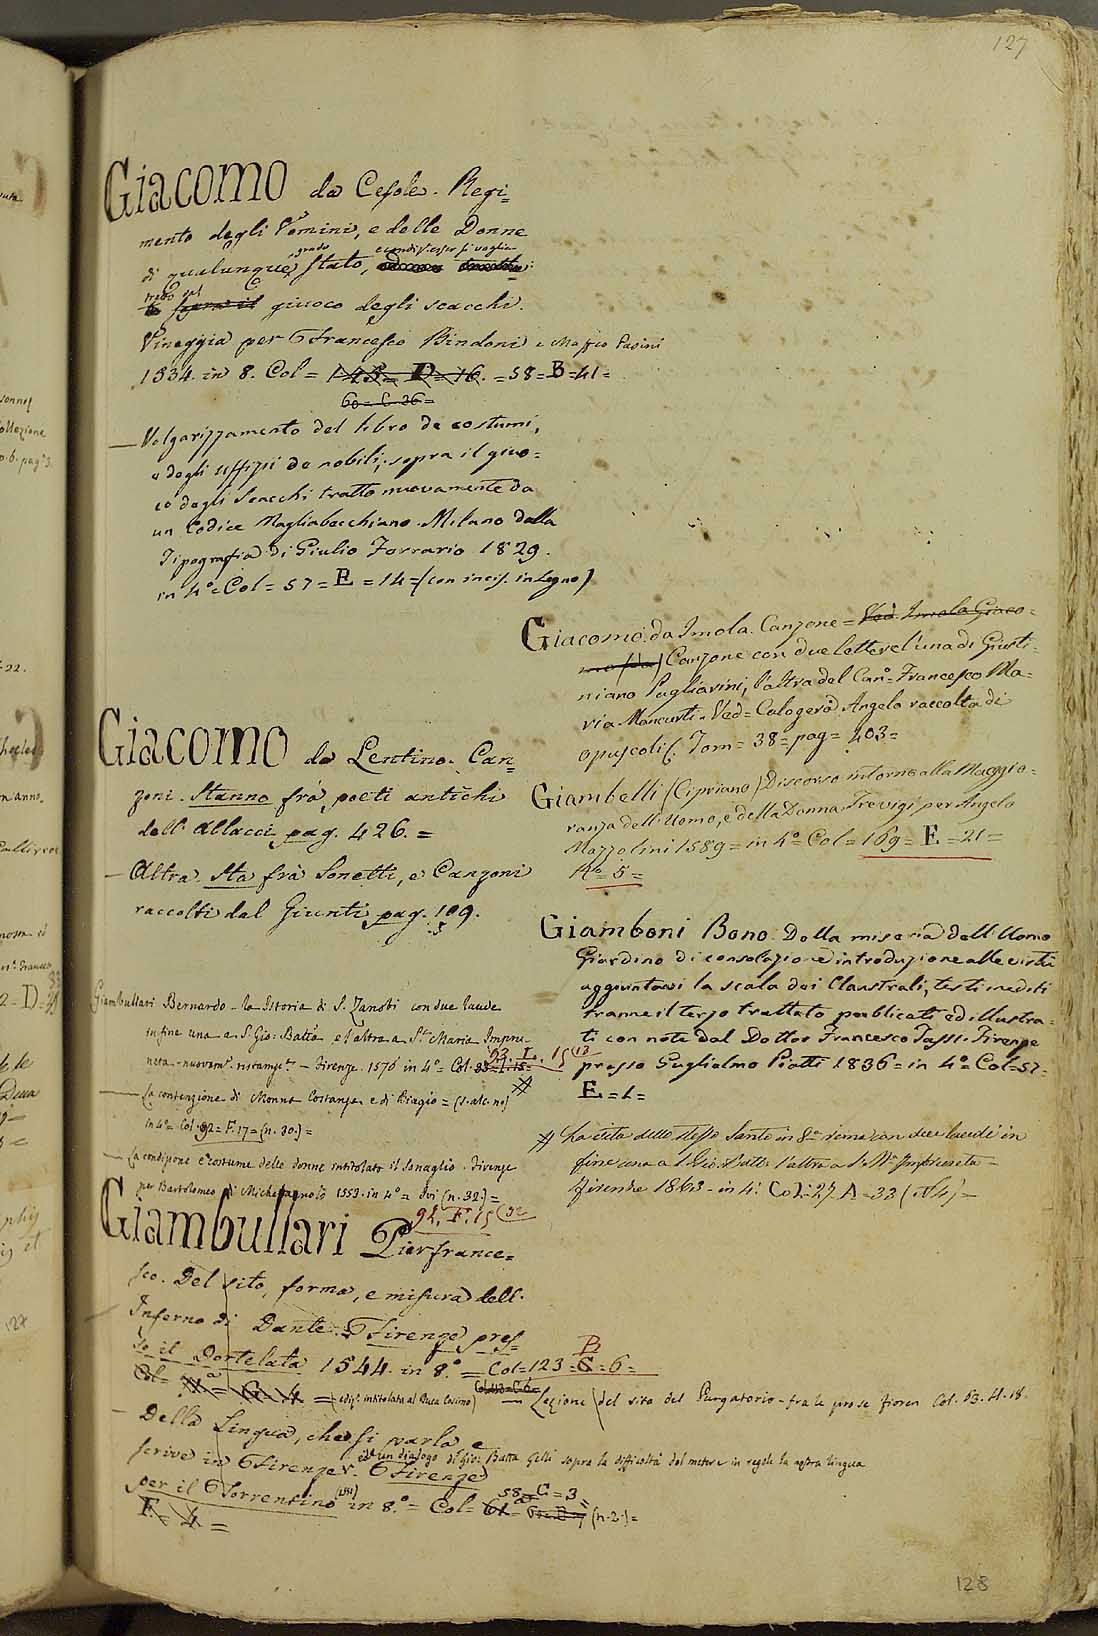 127
Giacomo da Cesole. Regi=
mento degli Vomini, e delle Donne
grado
di qualunque stato,
giuoco degli scacchi.
Vineggia per Francesco Bindoni e Maffeo Pasini
1534. in 8. Col= 145= D=16. =58=B=41=
60= C. 36=
— Volgarizzamento del libro de costumi,
e degli uffizii de nobili, sopra il giuo=
co degli Scacchi tratto nuovamente da
un Codice Magliabecchiano. Milano dalla
Tipografia di Giulio Ferrario 1829.
in 4º= Col= 57= E =14= (con incis. in legno)
Giacomo da Lentino. Can=
zoni. Stanno frà poeti antichi
dell'Allacci pag. 426. =
— Altra. Sta frà Sonetti, e Canzoni
raccolti dal Giunti pag. 109.
Giambullari Bernardo - la Istoria di S. Zanobi con due laude
infine una a S. Gio: Batta e l'altra a Sta. Maria Impru
neta - nuovamte. ristampta. — Firenze. 1576 in 4º= Col.
93. F. 15 (13
— La contenzione di Monna Costanza e di Biagio = (s. alc. no)
in 4º= Col. 92= F. 17= (n. 30.)=
— La condizione e costume delle donne intitolato il Sonaglio. Firenze
per Bartolomeo di Michelagnolo 1553. in 4º= Ivi (n. 32.)=
92. F. 15 (32
Giambullari Pierfrance=
sco. Del sito, forma, e misura dell'
Inferno di Dante. Firenze pres=
so il Dortelata 1544. in 8.º = Col=123=G=6=
B
Col=
(ediz. intitolata al Duca Cosimo) — Lezione (del sito del Purgatorio - fra le prose fioren. Col. 63. H. 18.
— Della Lingua, che si parla e
scrive in Firenze. Firenze
ed un dialogo di Gio: Batta Gelli sopra la difficoltà del metere in regole la nostra lingua
per il Torrentino in 8.º = Col= 61=
58=C=3
(n. 2.)=
F= 4=
Giacomo da Imola. Canzone= Ved. Imola Giaco=
mo (da) Canzone con due lettere l'una di Giusti=
niano Pagliarini, l'altra del Cano. Francesco Ma=
ria Mancurti. Ved= Calogerà Angelo raccolta di
opuscoli. Tom= 38= pag= 403=
Giambelli (Cipriano) Discorso intorno alla Maggio=
ranza dell'Uomo, e della Donna. Trevigi per Angelo
Mazzolini 1589= in 4º= Col= 169= E =21=
Nº 5=
Giamboni Bono. Della miseria dell'Uomo
Giardino di consolazione introduzione alle virtù
aggiuntavi la scala dei Claustrali, testi inediti
tranne il terzo trattato pubblicati ed illustra=
ti con note dal Dottor Francesco Tassi. Firenze
presso Guglielmo Piatti 1836= in 4º= Col=57=
E=1=
La vita dello stesso Santo in 8ª rima con due laudi in
fine una a S. Gio: Batta. l'altra a S. Ma. Impruneta=
Firenze 1863= in 4º. Col=27. A=33 (N 4)=
128